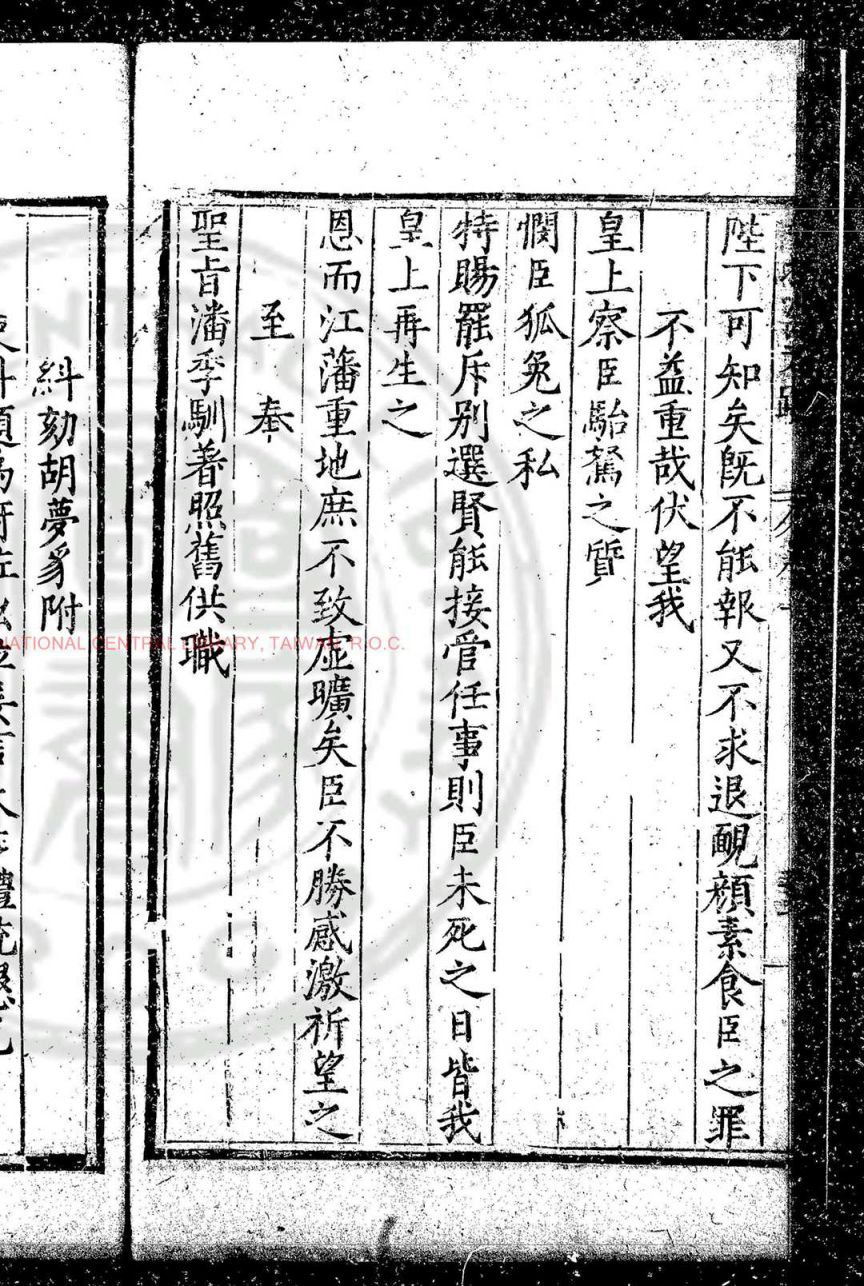 陛下可知矣既不能報又不求退靦顔素食臣之罪
不益重哉伏望我
皇上察臣駘駑之質
憫臣狐兔之私
特賜罷斥别選賢能接管任事則臣未死之日皆我
皇上再生之
恩而江藩重地庶不致虚曠矣臣不勝感激祈望之
至奉
聖旨潘季馴着照舊供職
糾劾胡夢豸附
NATIONAL CENTRAL LIBRARY, TAIWAN, R.O.C.